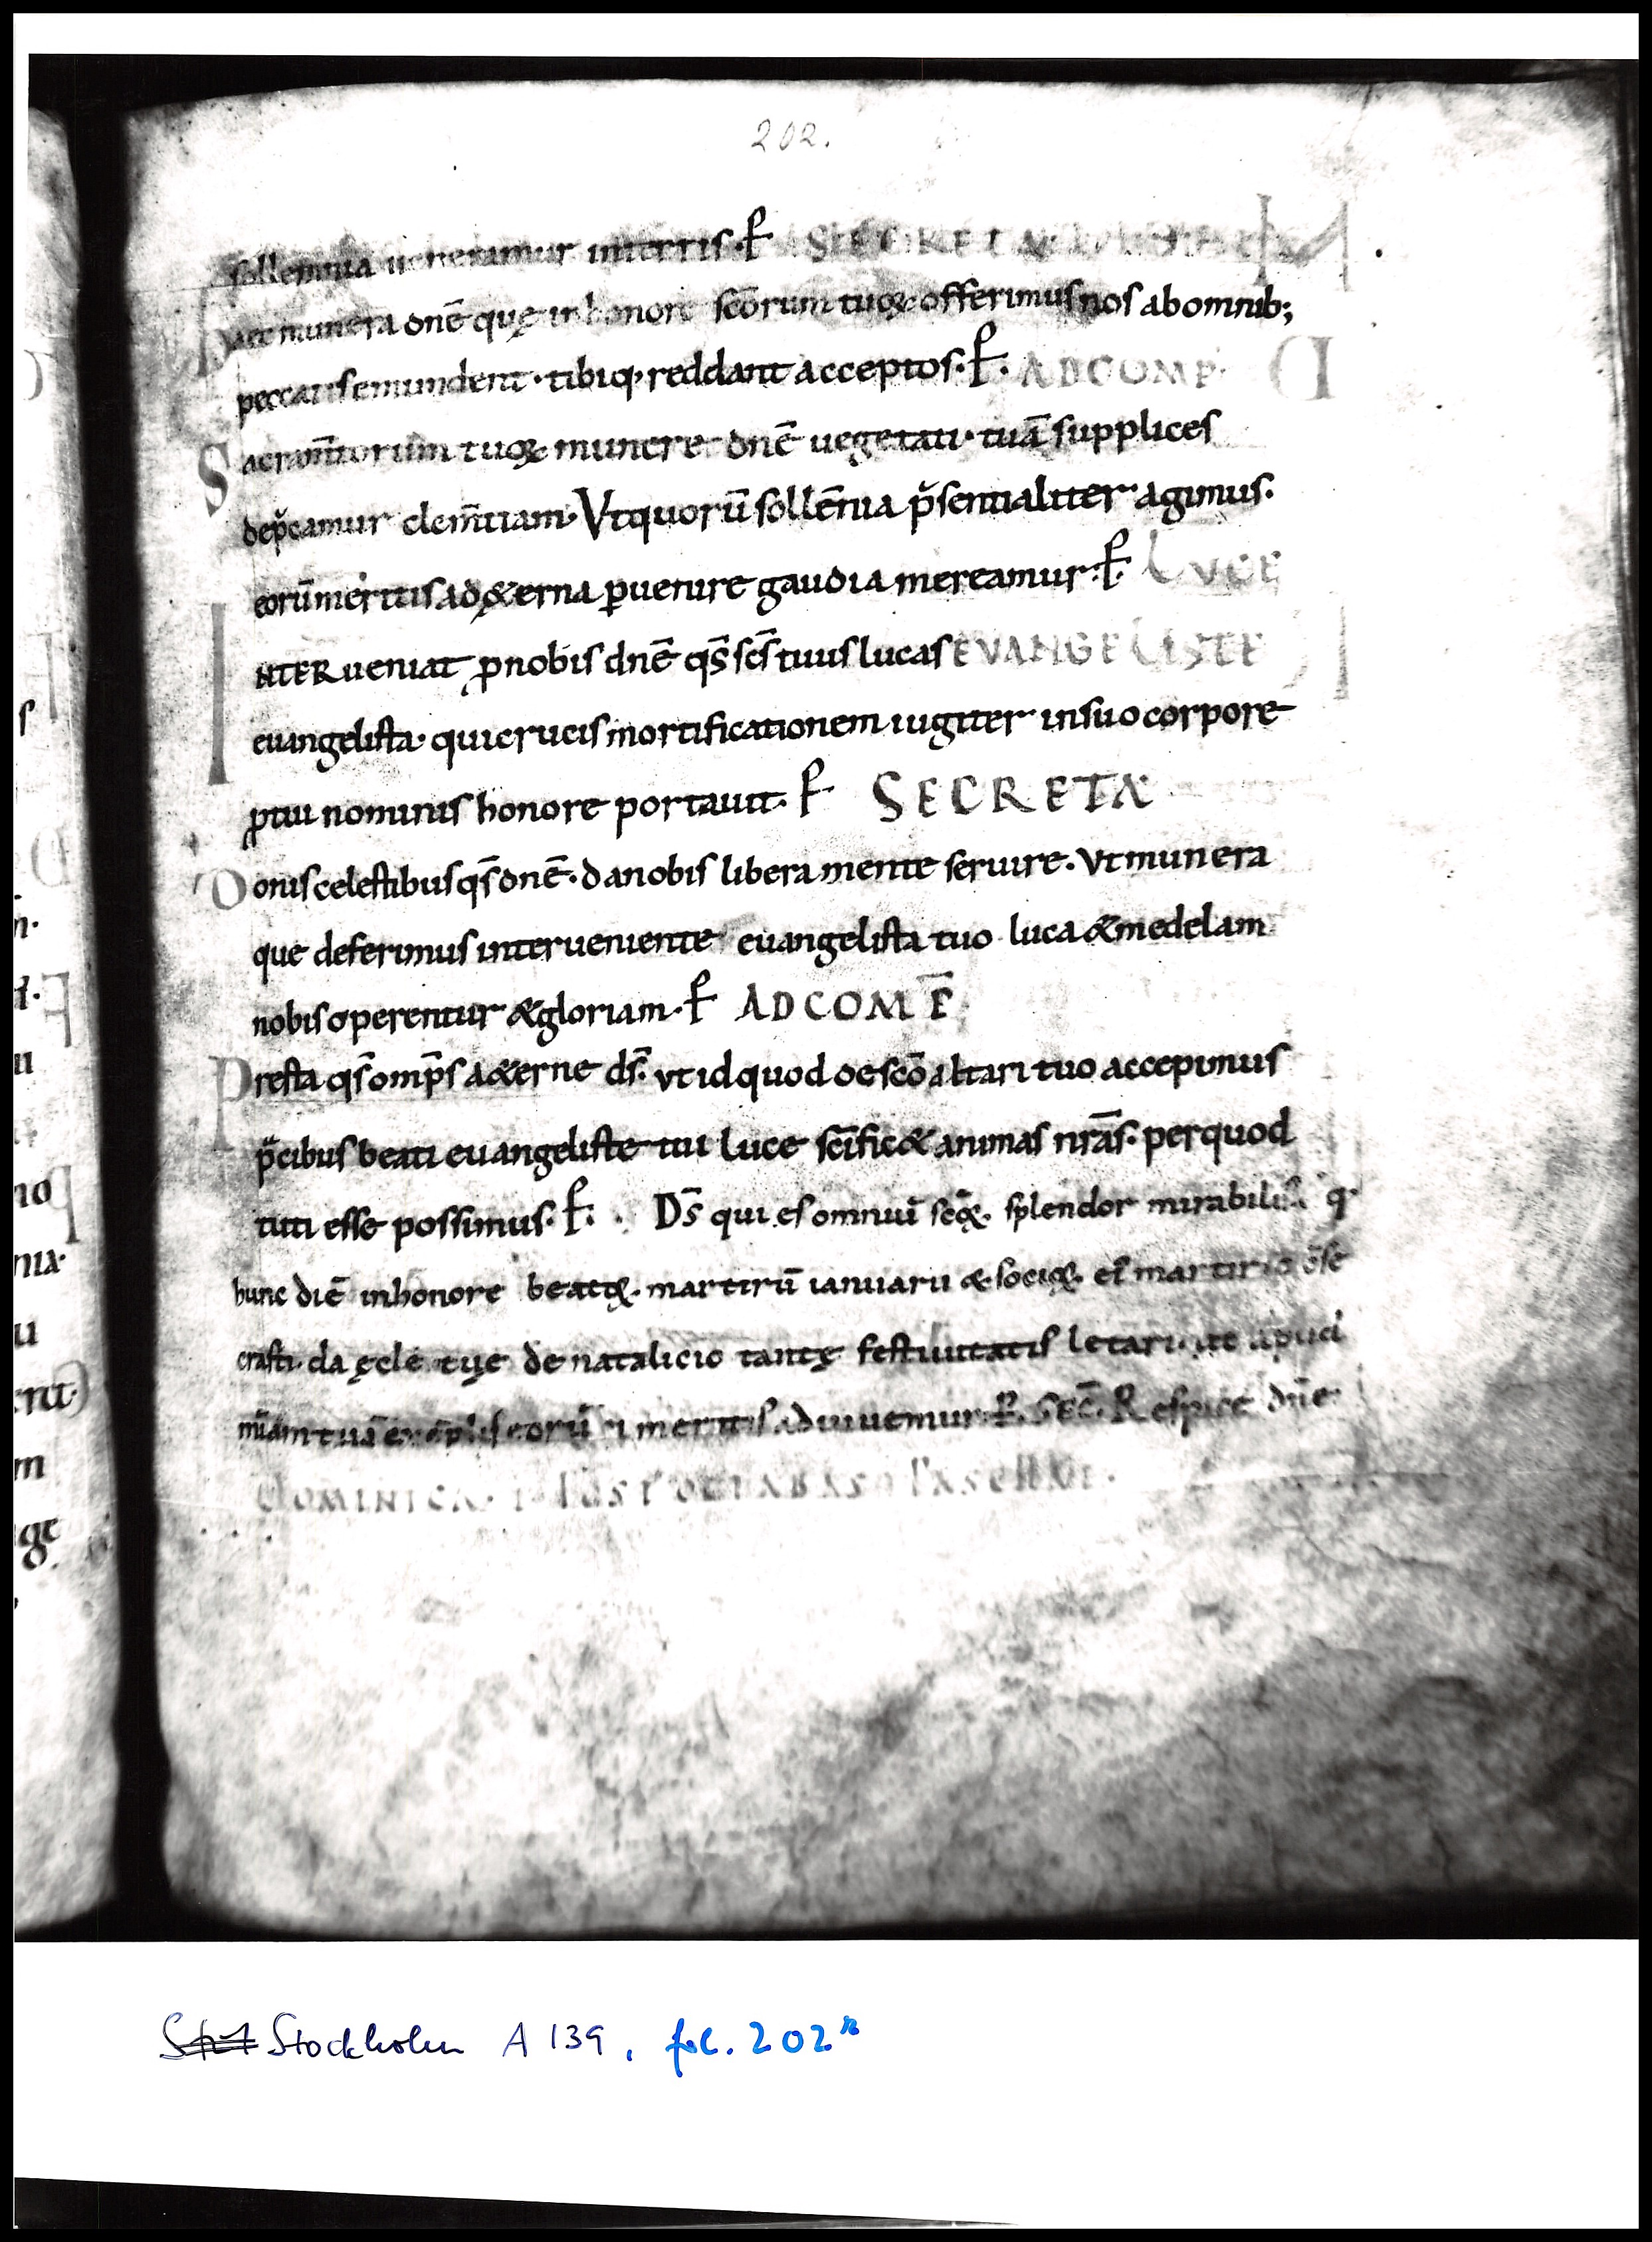 202.
sollemnia ueneramur meritis· ꝑ SECRETA
haec munera dnē quę in honore scōrum tuoꝝ offerimus nos abomnib;
peccatis emundent· tibiq; reddant acceptos· ꝑ· ADCOMP·
Sacram̄torum tuoꝝ munere dnē uegetati· tuā supplices
dep̄camur clem̄tiam· Vtquorū sollēnia p̄sentialiter agimus·
eorū meritis ad &erna ꝑuenire gaudia mereamur· ꝑ LUCE
INTERueniat ꝓnobis dnē qs̄ scs̄ tuus lucas EVANGELISTE
euangelista· qui crucis mortificationem iugiter insuo corpore
ꝓtui nominis honore portauit· ꝑ SECRETA
Donis celestibus qs̄ dnē· danobis libera mente seruire· Vt munera
que deferimus interueniente euangelista tuo luca & medelam
nobis operentur & gloriam· ꝑ ADCOMP̄
Presta qs̄ omp̄s a&erne ds̄· vt id quod de scō altari tuo accepimus
p̄cibus beati euangeliste tui luce sc̄ific& animas nr̄as· per quod
tuti esse possimus· ꝑ· Ds̄ qui es omniū scōꝝ· splendor mirabilis q·
hunc diē inhonore beatoꝝ· martirū ianuarii & socioꝝ· ei martirio
crasti· da ęcle tuę de natalicio tantę festiuitatis letari· ut apud
mīam tuā exēplis eorū meritis adiuuemur· ꝑ· SEC̄· Respice dnē
DOMINICA· I· POST OCTABAS PASCHAE·
Stockholm A 139, fol. 202r